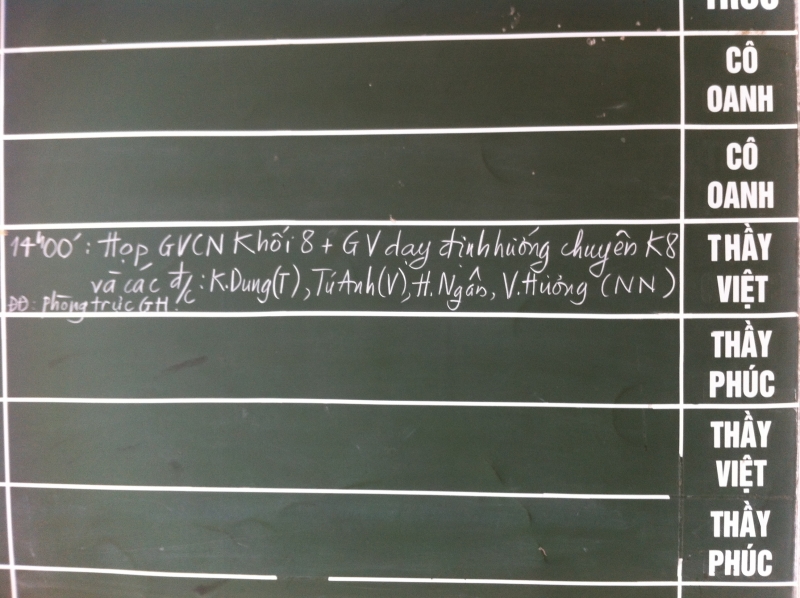 TRỰC
CÔ
OANH
CÔ
OANH
14h00': Họp GVCN Khối 8 + GV dạy định hướng chuyên K8
và các đ/c: K.Dung(T), Tú Anh(V), H.Ngân, V.Hưởng (NN)
ĐĐ: Phòng trực GH.
THẦY
VIỆT
THẦY
PHÚC
THẦY
VIỆT
THẦY
PHÚC